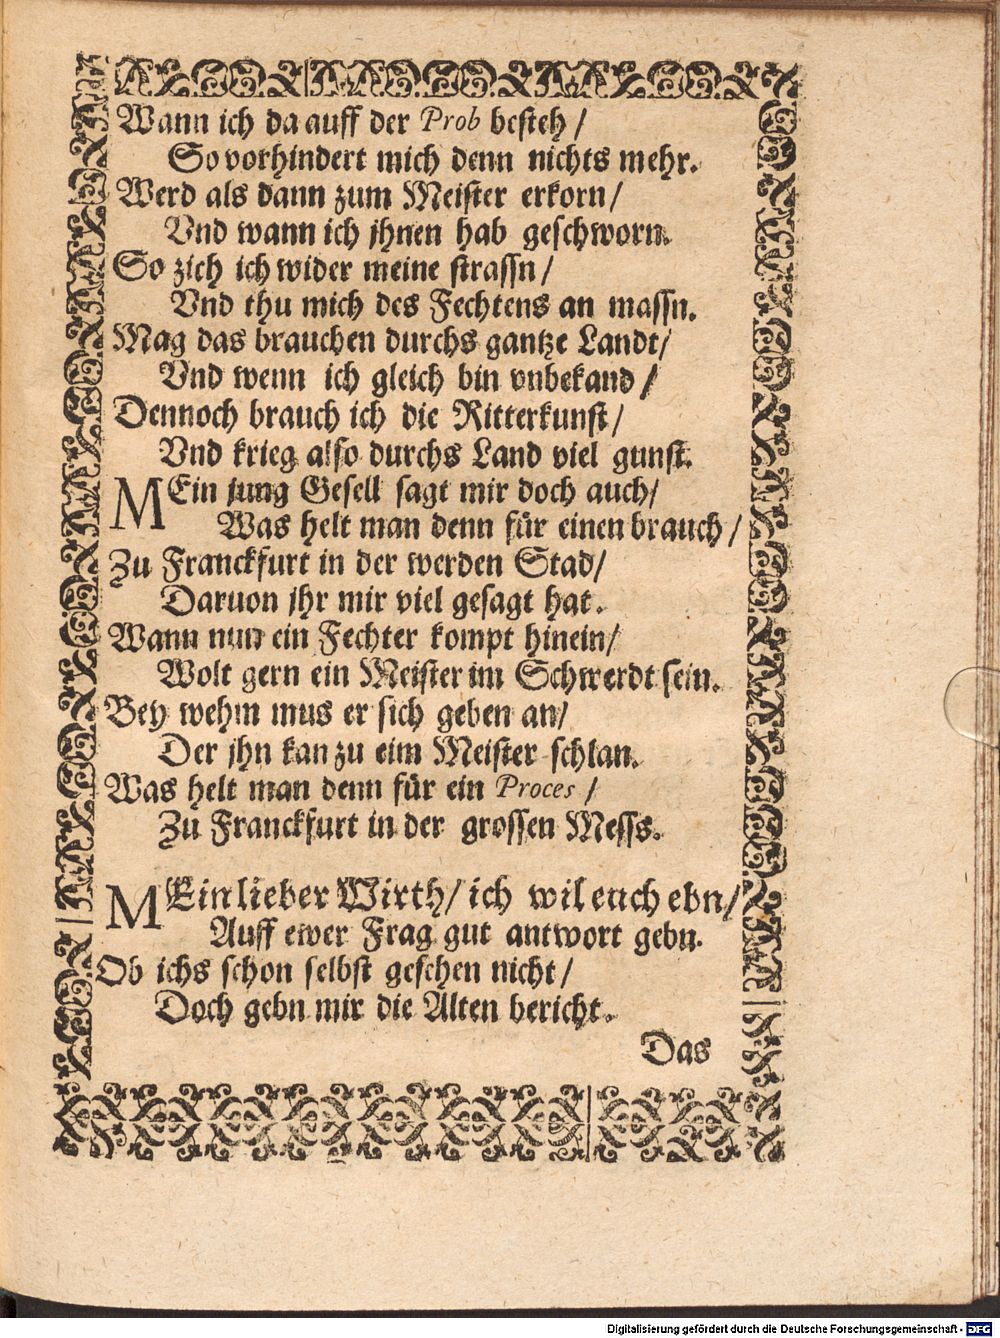 Wann ich da auff der Prob besteh /
So vorhindert mich denn nichts mehr.
Werd als dann zum Meister erkorn /
Vnd wann ich jhnen hab geschworn.
So zieh ich wider meine strassn /
Vnd thu mich des Fechtens an massn.
Mag das brauchen durchs gantze Landt /
Vnd wenn ich gleich bin vnbekand /
Dennoch brauch ich die Ritterkunst /
Vnd krieg also durchs Land viel gunst.
MEin jung Gesell sagt mir doch auch /
Was helt man denn für einen brauch /
Zu Franckfurt in der werden Stad /
Daruon jhr mir viel gesagt hat.
Wann nun ein Fechter kompt hinein /
Wolt gern ein Meister im Schwerdt sein.
Bey wehm mus er sich geben an /
Der jhn kan zu eim Meister schlan.
Was helt man denn für ein Proces /
Zu Franckfurt in der grossen Mess.
MEin lieber Wirth / ich wil euch ebn /
Auff ewer Frag gut antwort gebn.
Ob ichs schon selbst gesehen nicht /
Doch gebn mir die Alten bericht.
Das
Digitalisierung gefördert durch die Deutsche Forschungsgemeinschaft - DFG